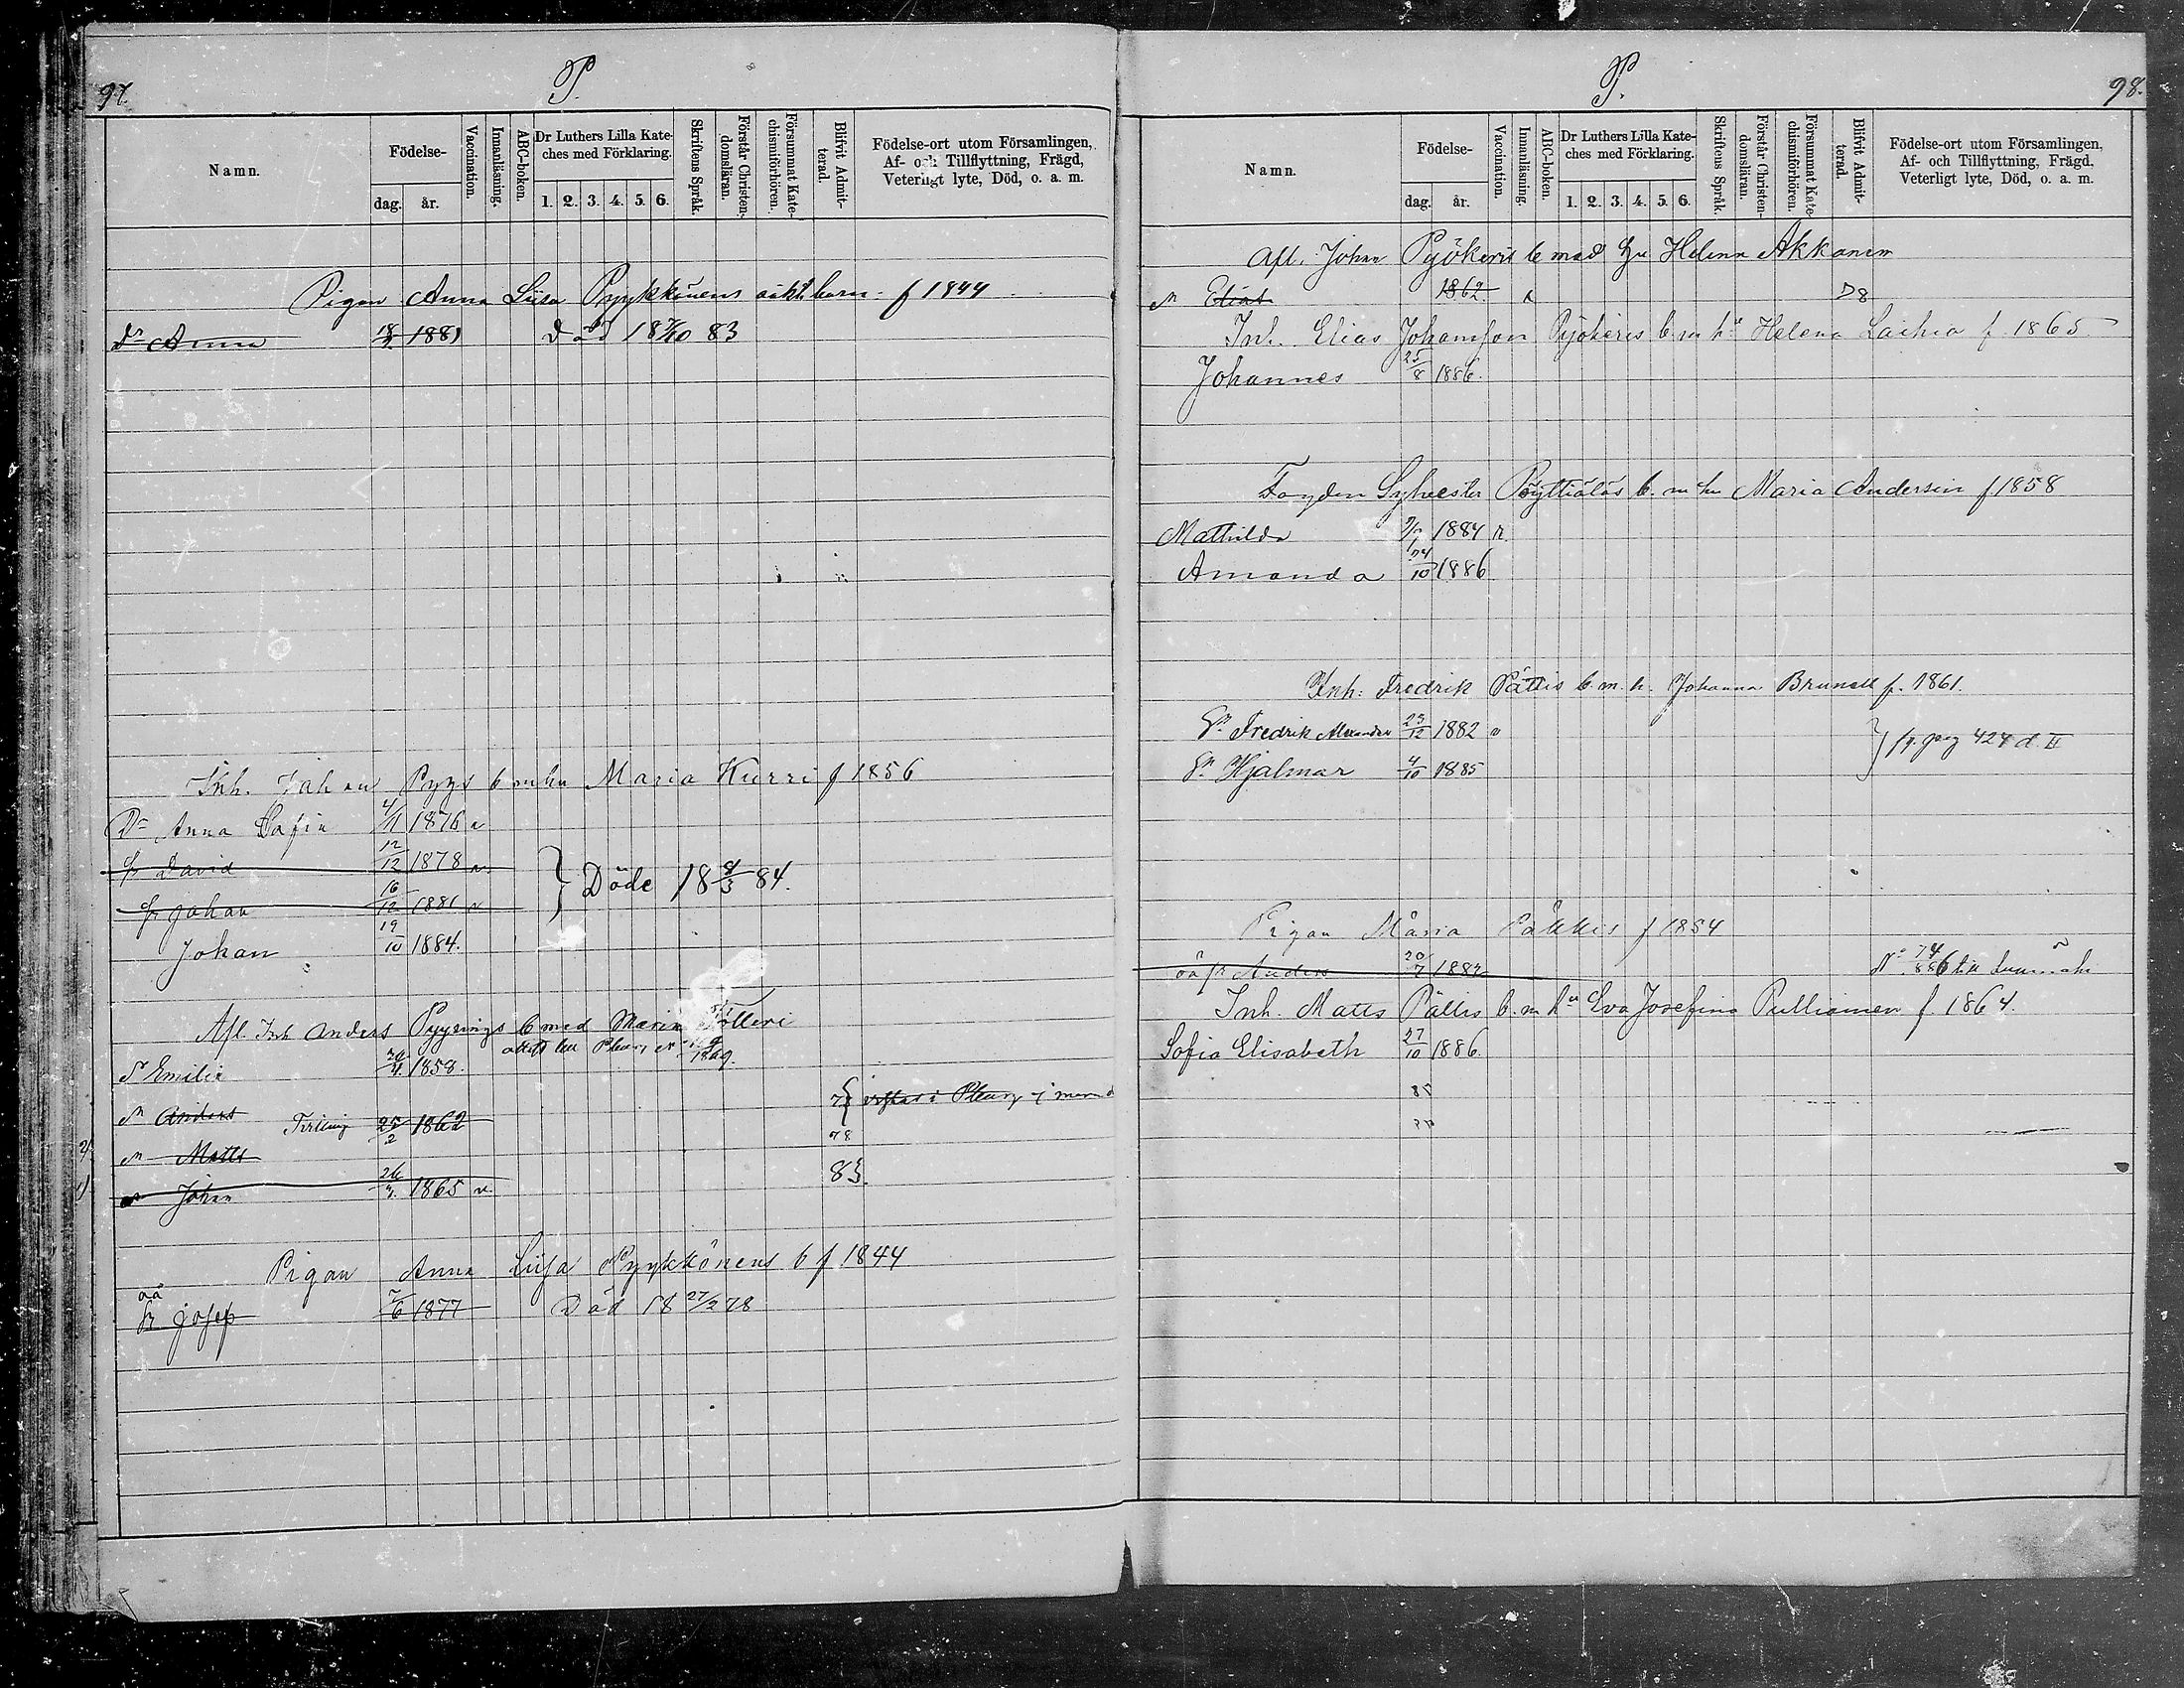 97.
P.
Namn.
Födelse-
dag.
år.
Vaccination.
Innanläsning.
ABC-boken.
Dr Luthers Lilla Kate-
ches med Förklaring.
1. 2. 3. 4. 5. 6.
Skriftens Språk.
Förstår Christen-
domsläran.
Försummat Kate-
chismiförhören.
Blifvit Admit-
terad.
Födelse-ort utom Församlingen,
Af- och Tillflyttning, Frägd,
Veterligt lyte, Död, o. a. m.
Pigan Anna Liisa Pyykkönens oäkt barn f 1844
Dr Anna 1881 Död 18 7/10 83
Inh. Johan Pyys b m hu Maria Kurri f 1856
Dr Anna Sofia 4/11 1876 v
David 12/12 1878 v
Johan 16/12 1881 v
} Döde 18 8/3 84.
Johan 19/10 1884.
Afl. Inh Anders Pyyrings b med Maria Tölleri
Emilia 1858.
Anders Tvilling 25/2 1862 78
Matts 78
Johan 26 1865 v. 83
Pigan Anna Liisa Pyykkönens b f 1844
oä Josep 7/6 1877 Död 18 27/2 78
P.
98.
Namn.
Födelse-
dag.
år.
Vaccination.
Innanläsning.
ABC-boken.
Dr Luthers Lilla Kate-
ches med Förklaring.
1. 2. 3. 4. 5. 6.
Skriftens Språk.
Förstår Christen-
domsläran.
Försummat Kate-
chismiförhören.
Blifvit Admit-
terad.
Födelse-ort utom Församlingen,
Af- och Tillflyttning, Frägd,
Veterligt lyte, Död, o. a. m.
Afl. Johan Pyökeris b med hu Helena Akkanen
Elias 1862 78
Inh. Elias Johansson Pyökeris b m hu Helena Laihia f. 1865
Johannes 25/8 1886.
Sylvester b. m hu Maria Andersin f 1858
Mathilda 1884
Amanda 24/10 1886
Inh: Fredrik Pättis b. m. h. Johanna Brunell f. 1861.
Gn Fredrik Alexander 23/12 1882 v
Gn Hjalmar 4/10 1885
} fr. pag 424 d. II
Pigan Maria Påkkis f 1854
oä Anders 20/7 1882
Inh. Matts Pättis b. m hu Eva Josefina Pulliainen f. 1864.
Sofia Elisabeth 27/10 1886.